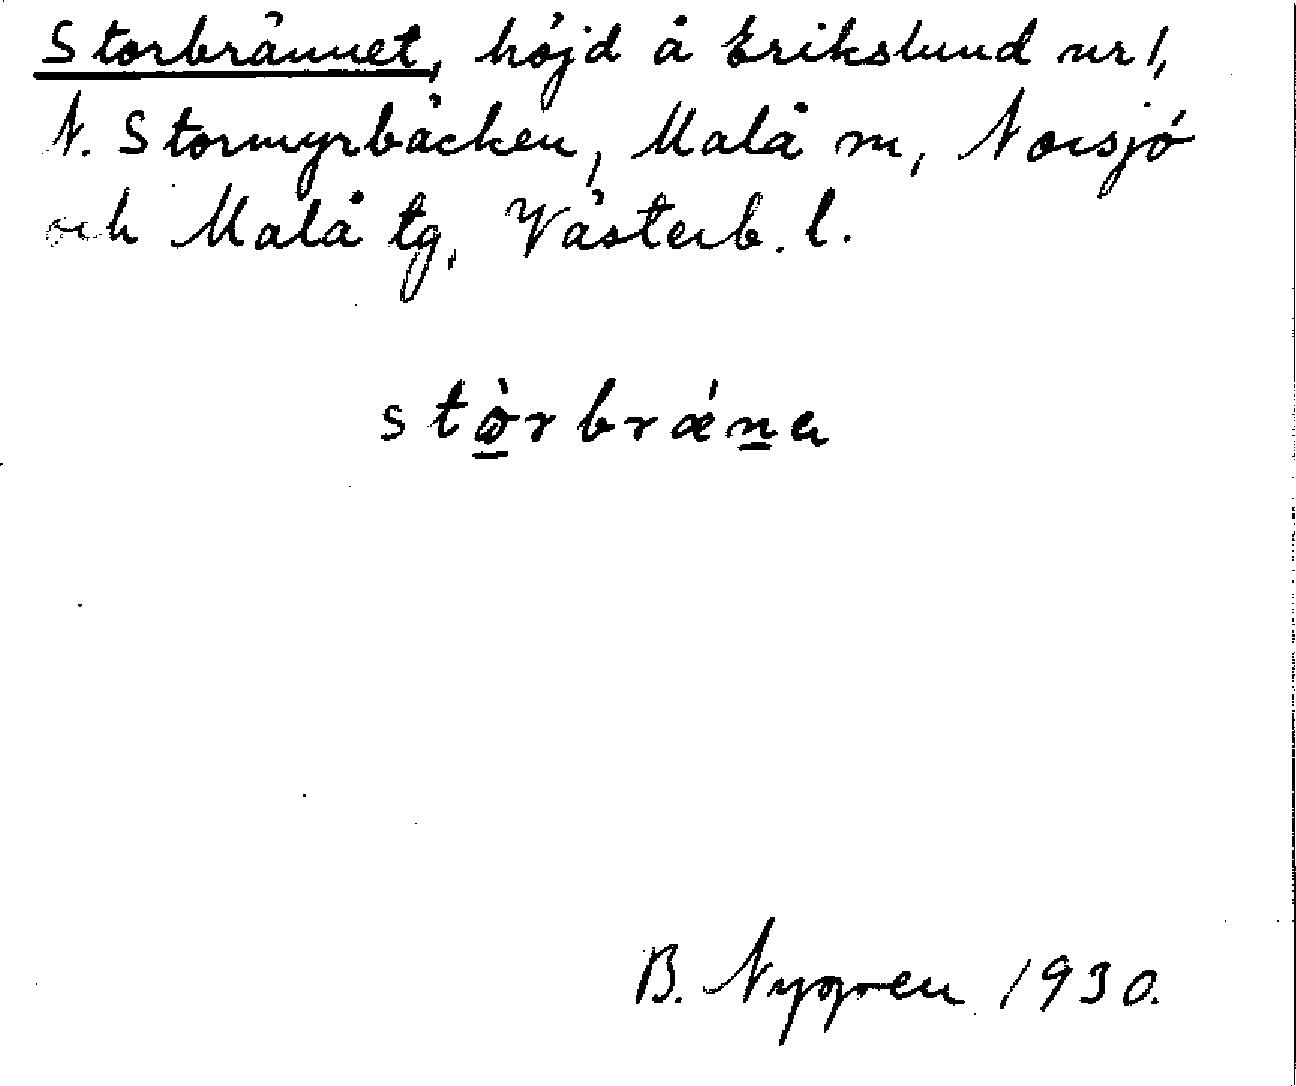 Storbrännet, höjd å Erikslund nr 1,
N. Stormyrbäcken, Malå m, Norsjö
och Malå tg, Västerb. l.
stòrbrǽna
B. Nygren 1930.